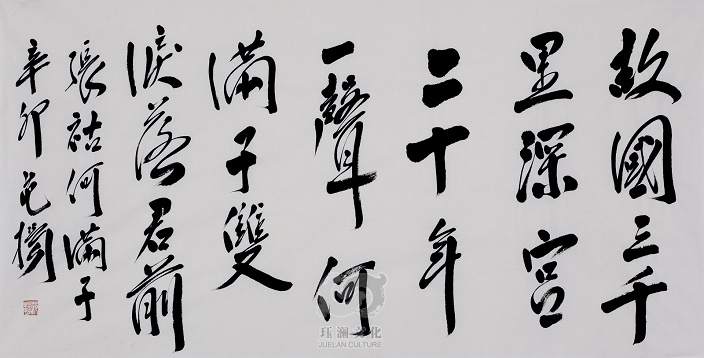 故國三千
里深宮
二十年
一聲何
滿子雙
淚落君前
張祜何滿子
辛卯
珏澜文化
JUELAN CULTURE